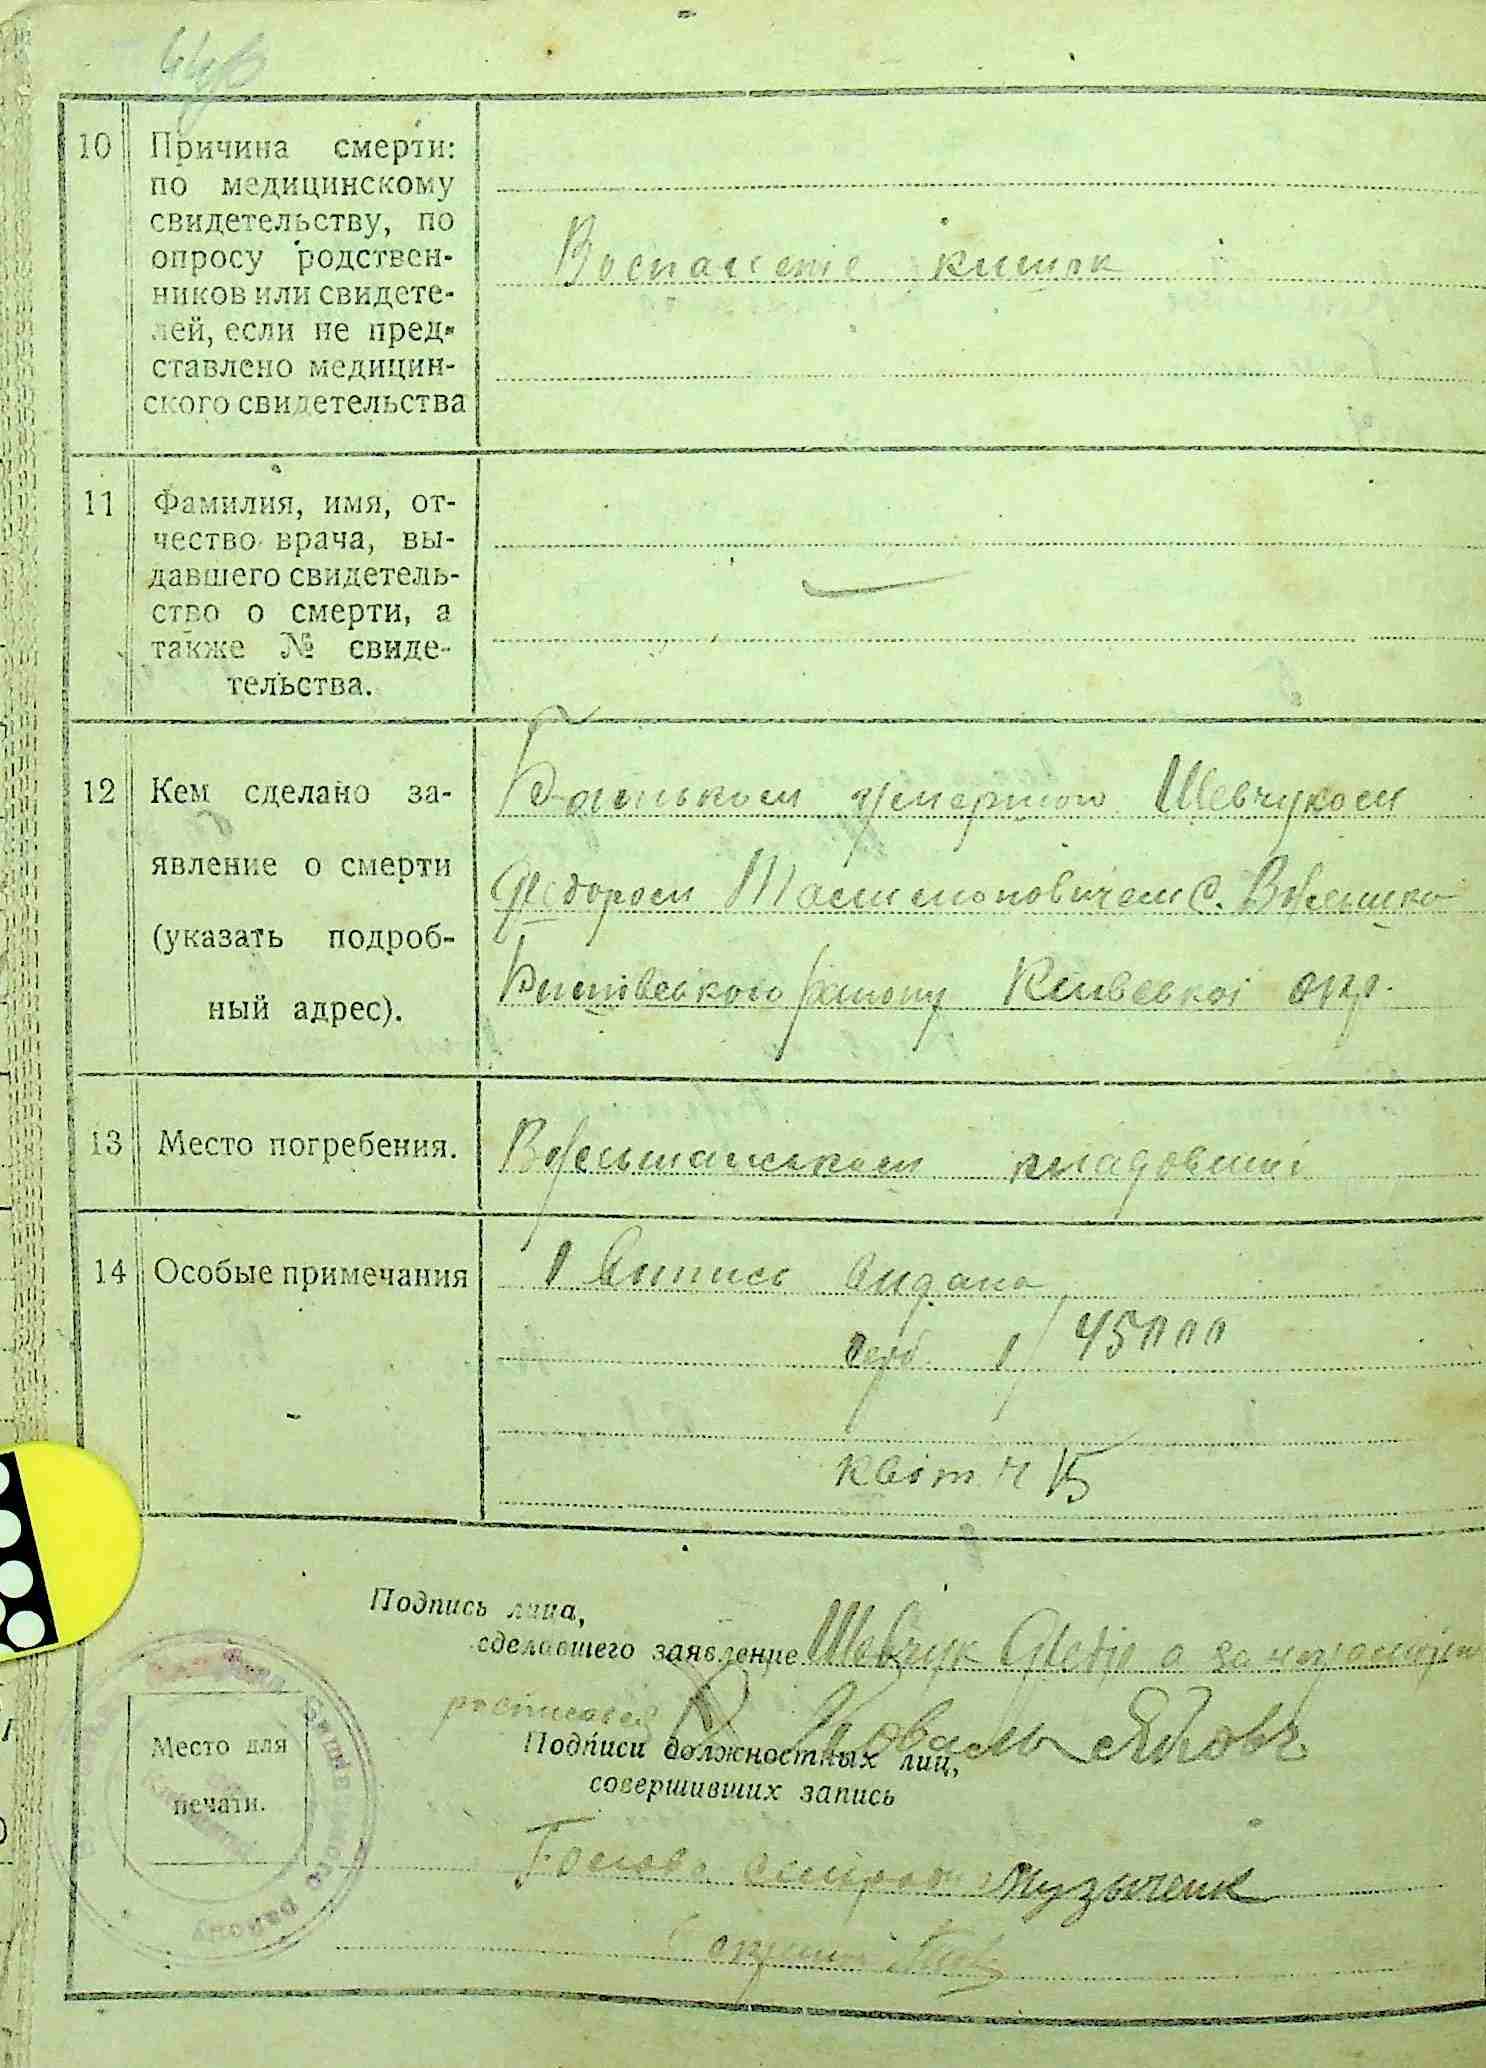 10 Причина смерти:
по медицинскому
свидетельству, по
опросу родствен-
ников или свидете-
лей, если не пред-
ставлено медицин-
ского свидетельства
Воспаление кишок
11 Фамилия, имя, от-
чество врача, вы-
давшего свидетель-
ство о смерти, а
также № свиде-
тельства.
12 Кем сделано за-
явление о смерти
(указать подроб-
ный адрес).
Батьком умершого Шевчуком
Федором
району Київської окр.
13 Место погребения.
кладовищі
14 Особые примечания
1 Выпись выдана
45000
квіт. Ч 15
Подпись лица,
сделавшего заявление Шевчук Федір а за
росписався Коваль Яков
Подписи должностных лиц,
совершивших запись
Место для
печати.
Голова сільради Музыченк